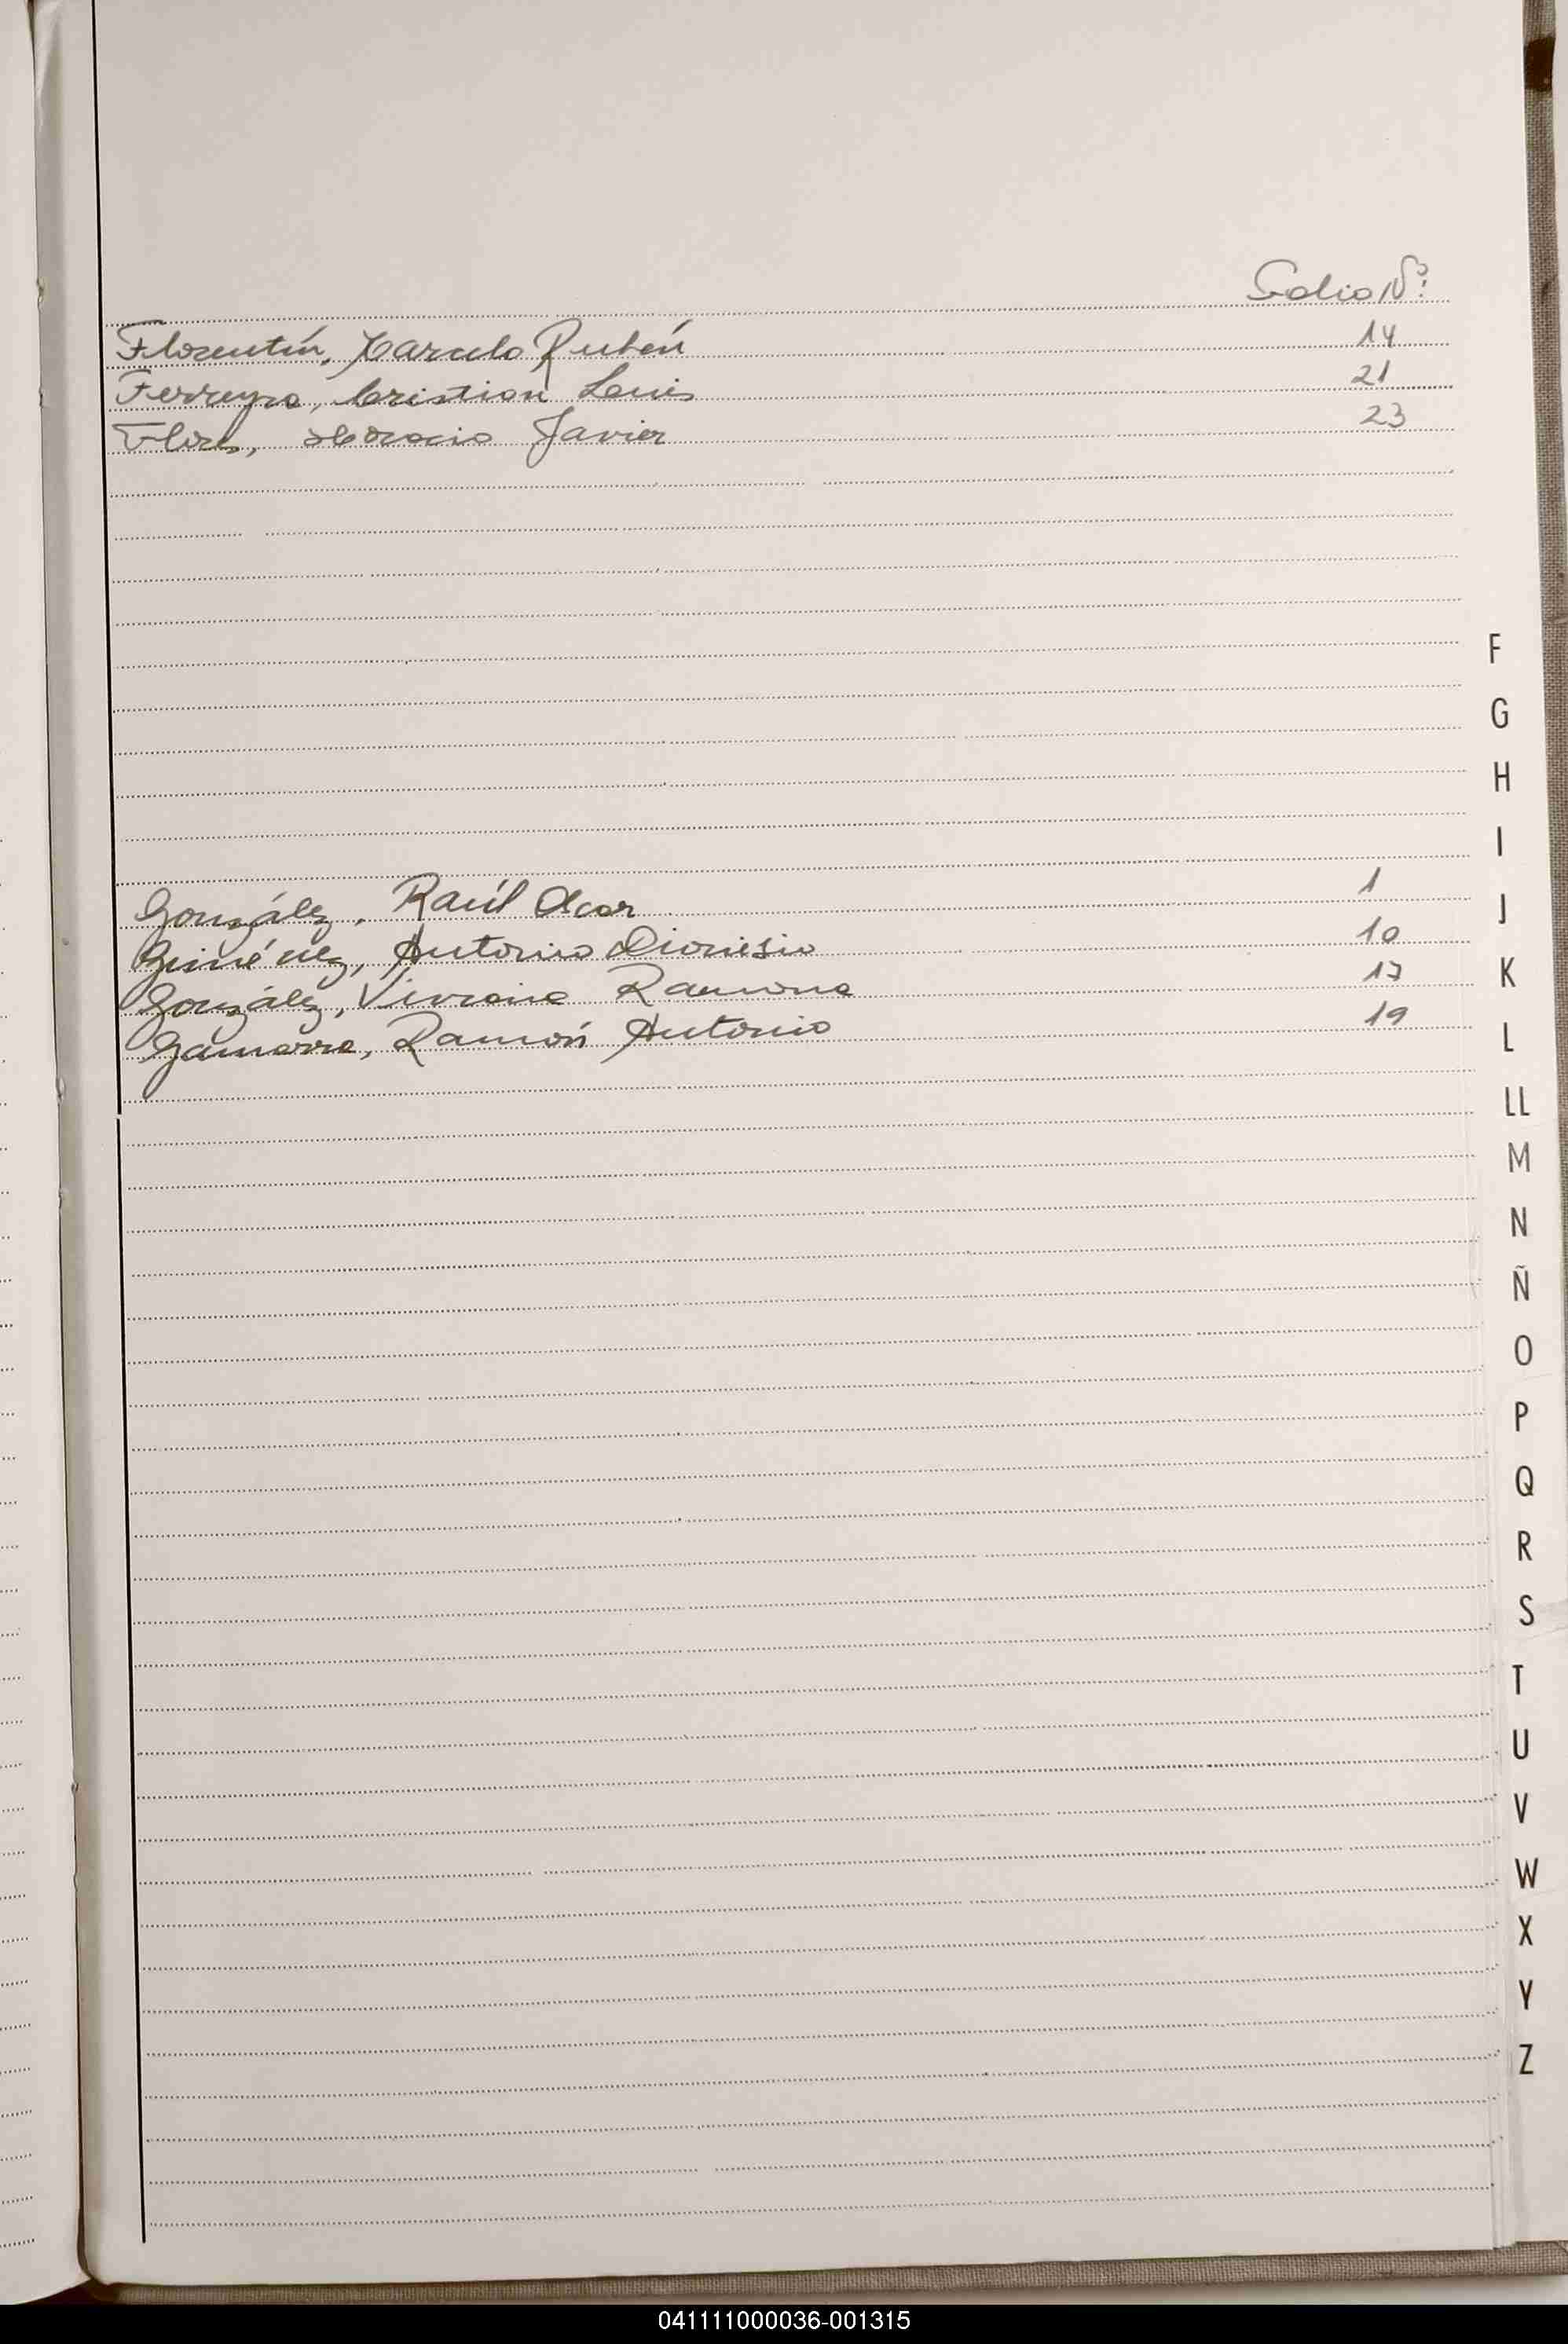 Folio Nº:
Florentín, Marcelo Rubén 14
Ferreyra, Cristian Luis 21
Flores, Horacio Javier 23
F
G
H
I
González, Raúl Oscar 1
J
Giménez, Antonio Dionisio 10
González, Viviana Ramona 17
K
Gamarra, Ramón Antonio 19
L
LL
M
N
Ñ
O
P
Q
R
S
T
U
V
W
X
Y
Z
041111000036-001315